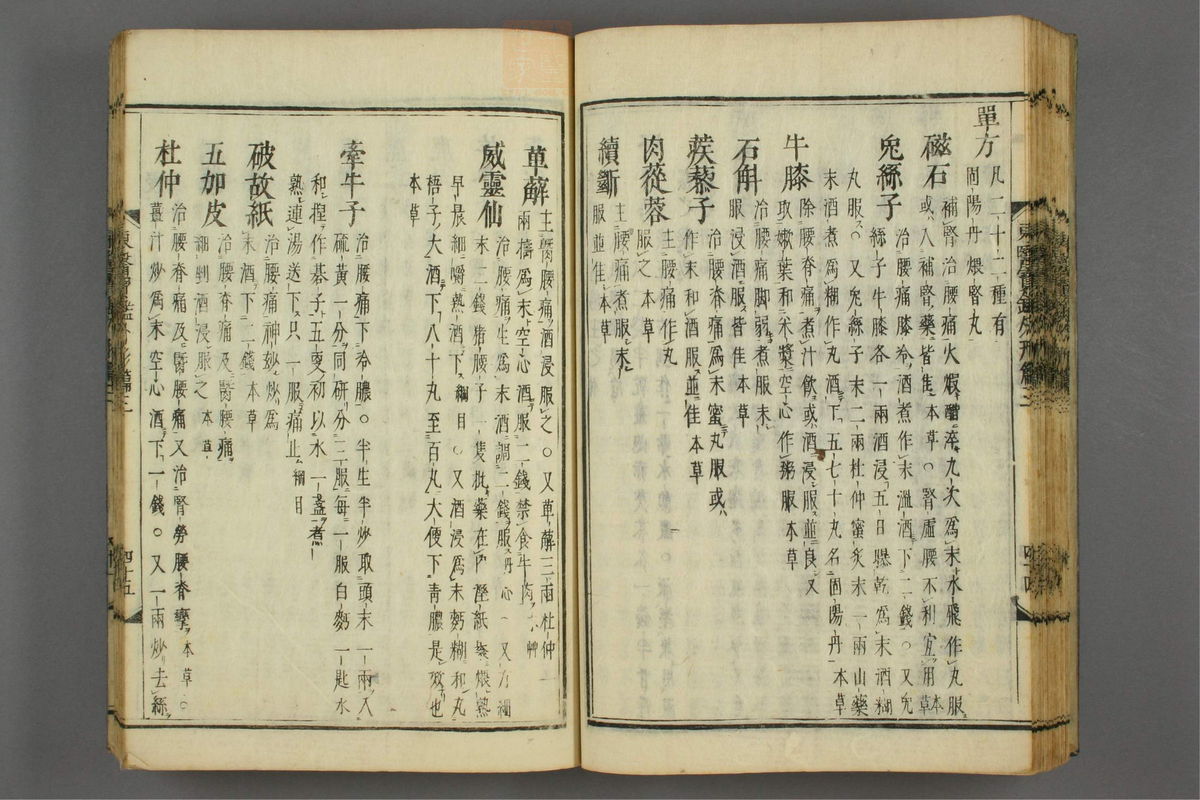 單方 凡二十二種有
固陽丹煨腎丸
磁石
補腎治腰痛火煆醋淬九次爲末水飛作丸服
或入補腎藥皆佳本草○腎虛腰不利宜用本草
兎絲子
治腰痛膝冷酒煮作末溫酒下二錢○又兎
絲子牛膝各一兩酒浸五日曝乾爲末酒糊
丸服○又兎絲子末二兩杜仲蜜炙末一兩山藥
末酒煮爲糊作丸酒下五七十丸名固陽丹本草
牛膝
除腰脊痛煮汁飮或酒浸服並良又
取嫩葉和米漿空心作粥服本草
石斛
治腰痛脚弱煮服末
服浸酒服皆佳本草
蒺藜子
治腰脊痛爲末蜜丸服或
作末和酒服並佳本草
肉蓯蓉
主腰痛作丸
服之本草
續斷
主腰痛煮服末
服並佳本草
萆薢
主腎腰痛酒浸服之○又萆薢三兩杜仲一
兩擣爲末空心酒服二錢禁食牛肉
威靈仙
治腰痛生爲末酒調二錢服丹心○又方細
末二錢猪腰子一隻批藥在內溼紙裹煨熟
早晨細嚼熱酒下綱目○又酒浸爲末麪糊和丸
梧子大酒下八十丸至百丸大便下靑膿是效也
本草
牽牛子
治腰痛下冷膿○半生半炒取頭末一兩入
硫黃一分同硏分三服每一服白麪一匙水
和捏作棊子五更初以水一盞煮
熟連湯送下只一服痛止綱目
破故紙
治腰痛神妙炒爲
末酒下二錢本草
五加皮
治腰脊痛及腎腰痛
細剉酒浸服之本草
杜仲
治腰脊痛及腎腰痛又治腎勞腰脊攣本草○
薑汁炒爲末空心酒下一錢○又一兩炒去絲